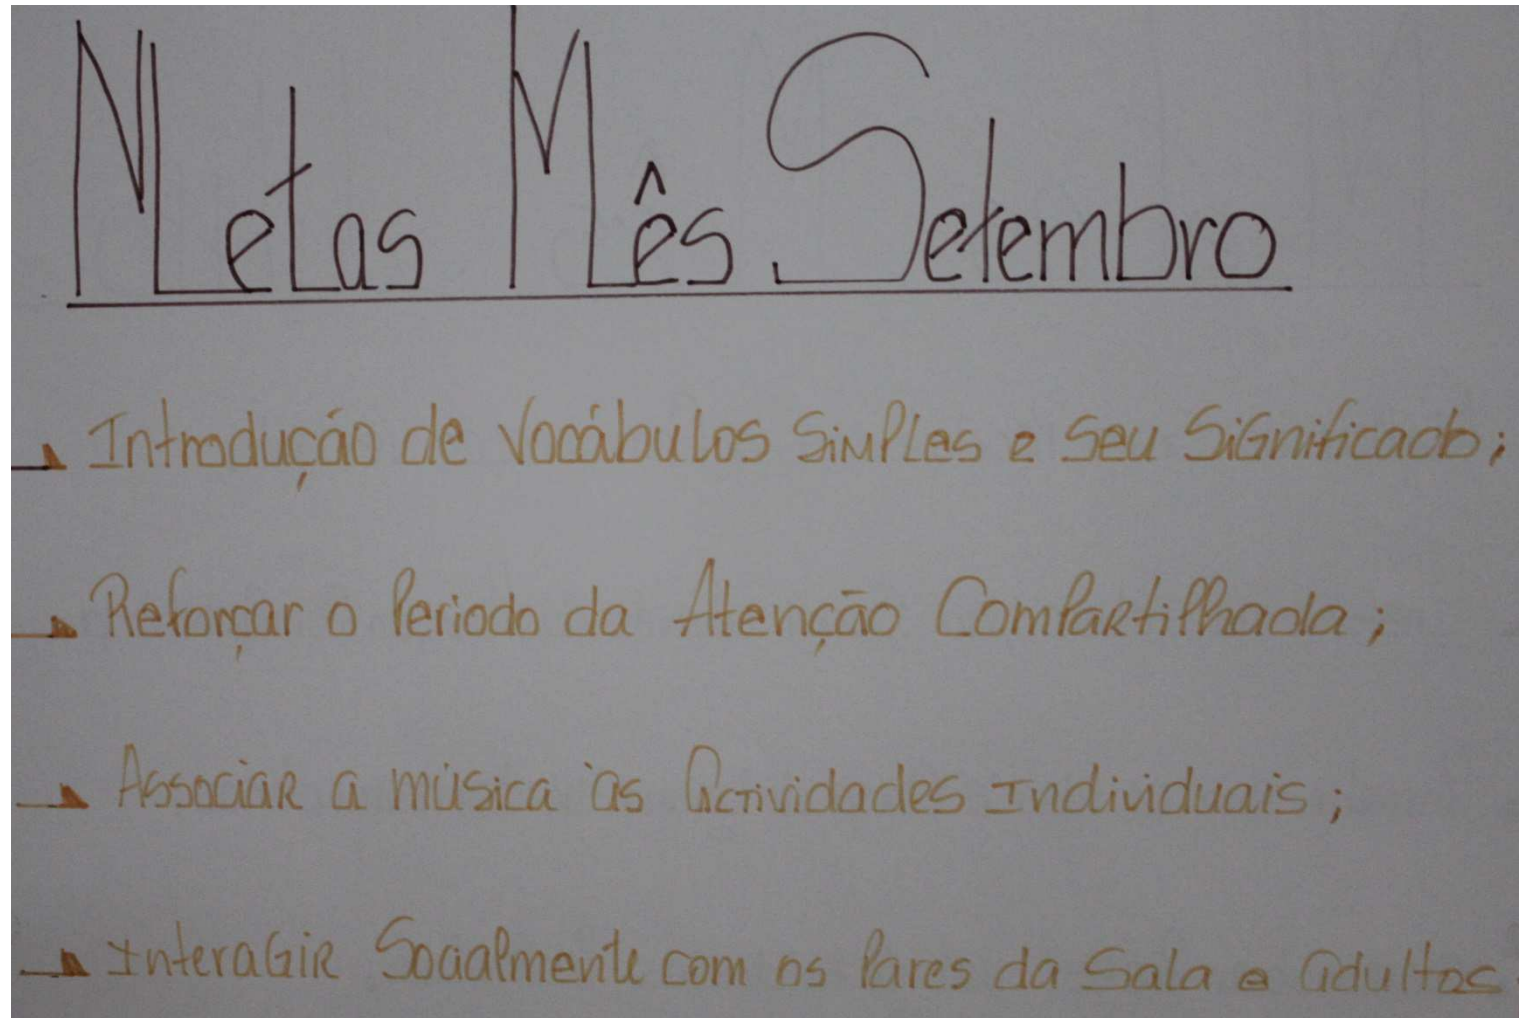 Metas Mês Setembro
Introdução de Vocábulos Simples e Seu Significado;
Reforçar o Periodo da Atenção Compartilhada;
Associar a música às Actividades Individuais;
Interagir Socialmente com os Pares da Sala e Adultos.